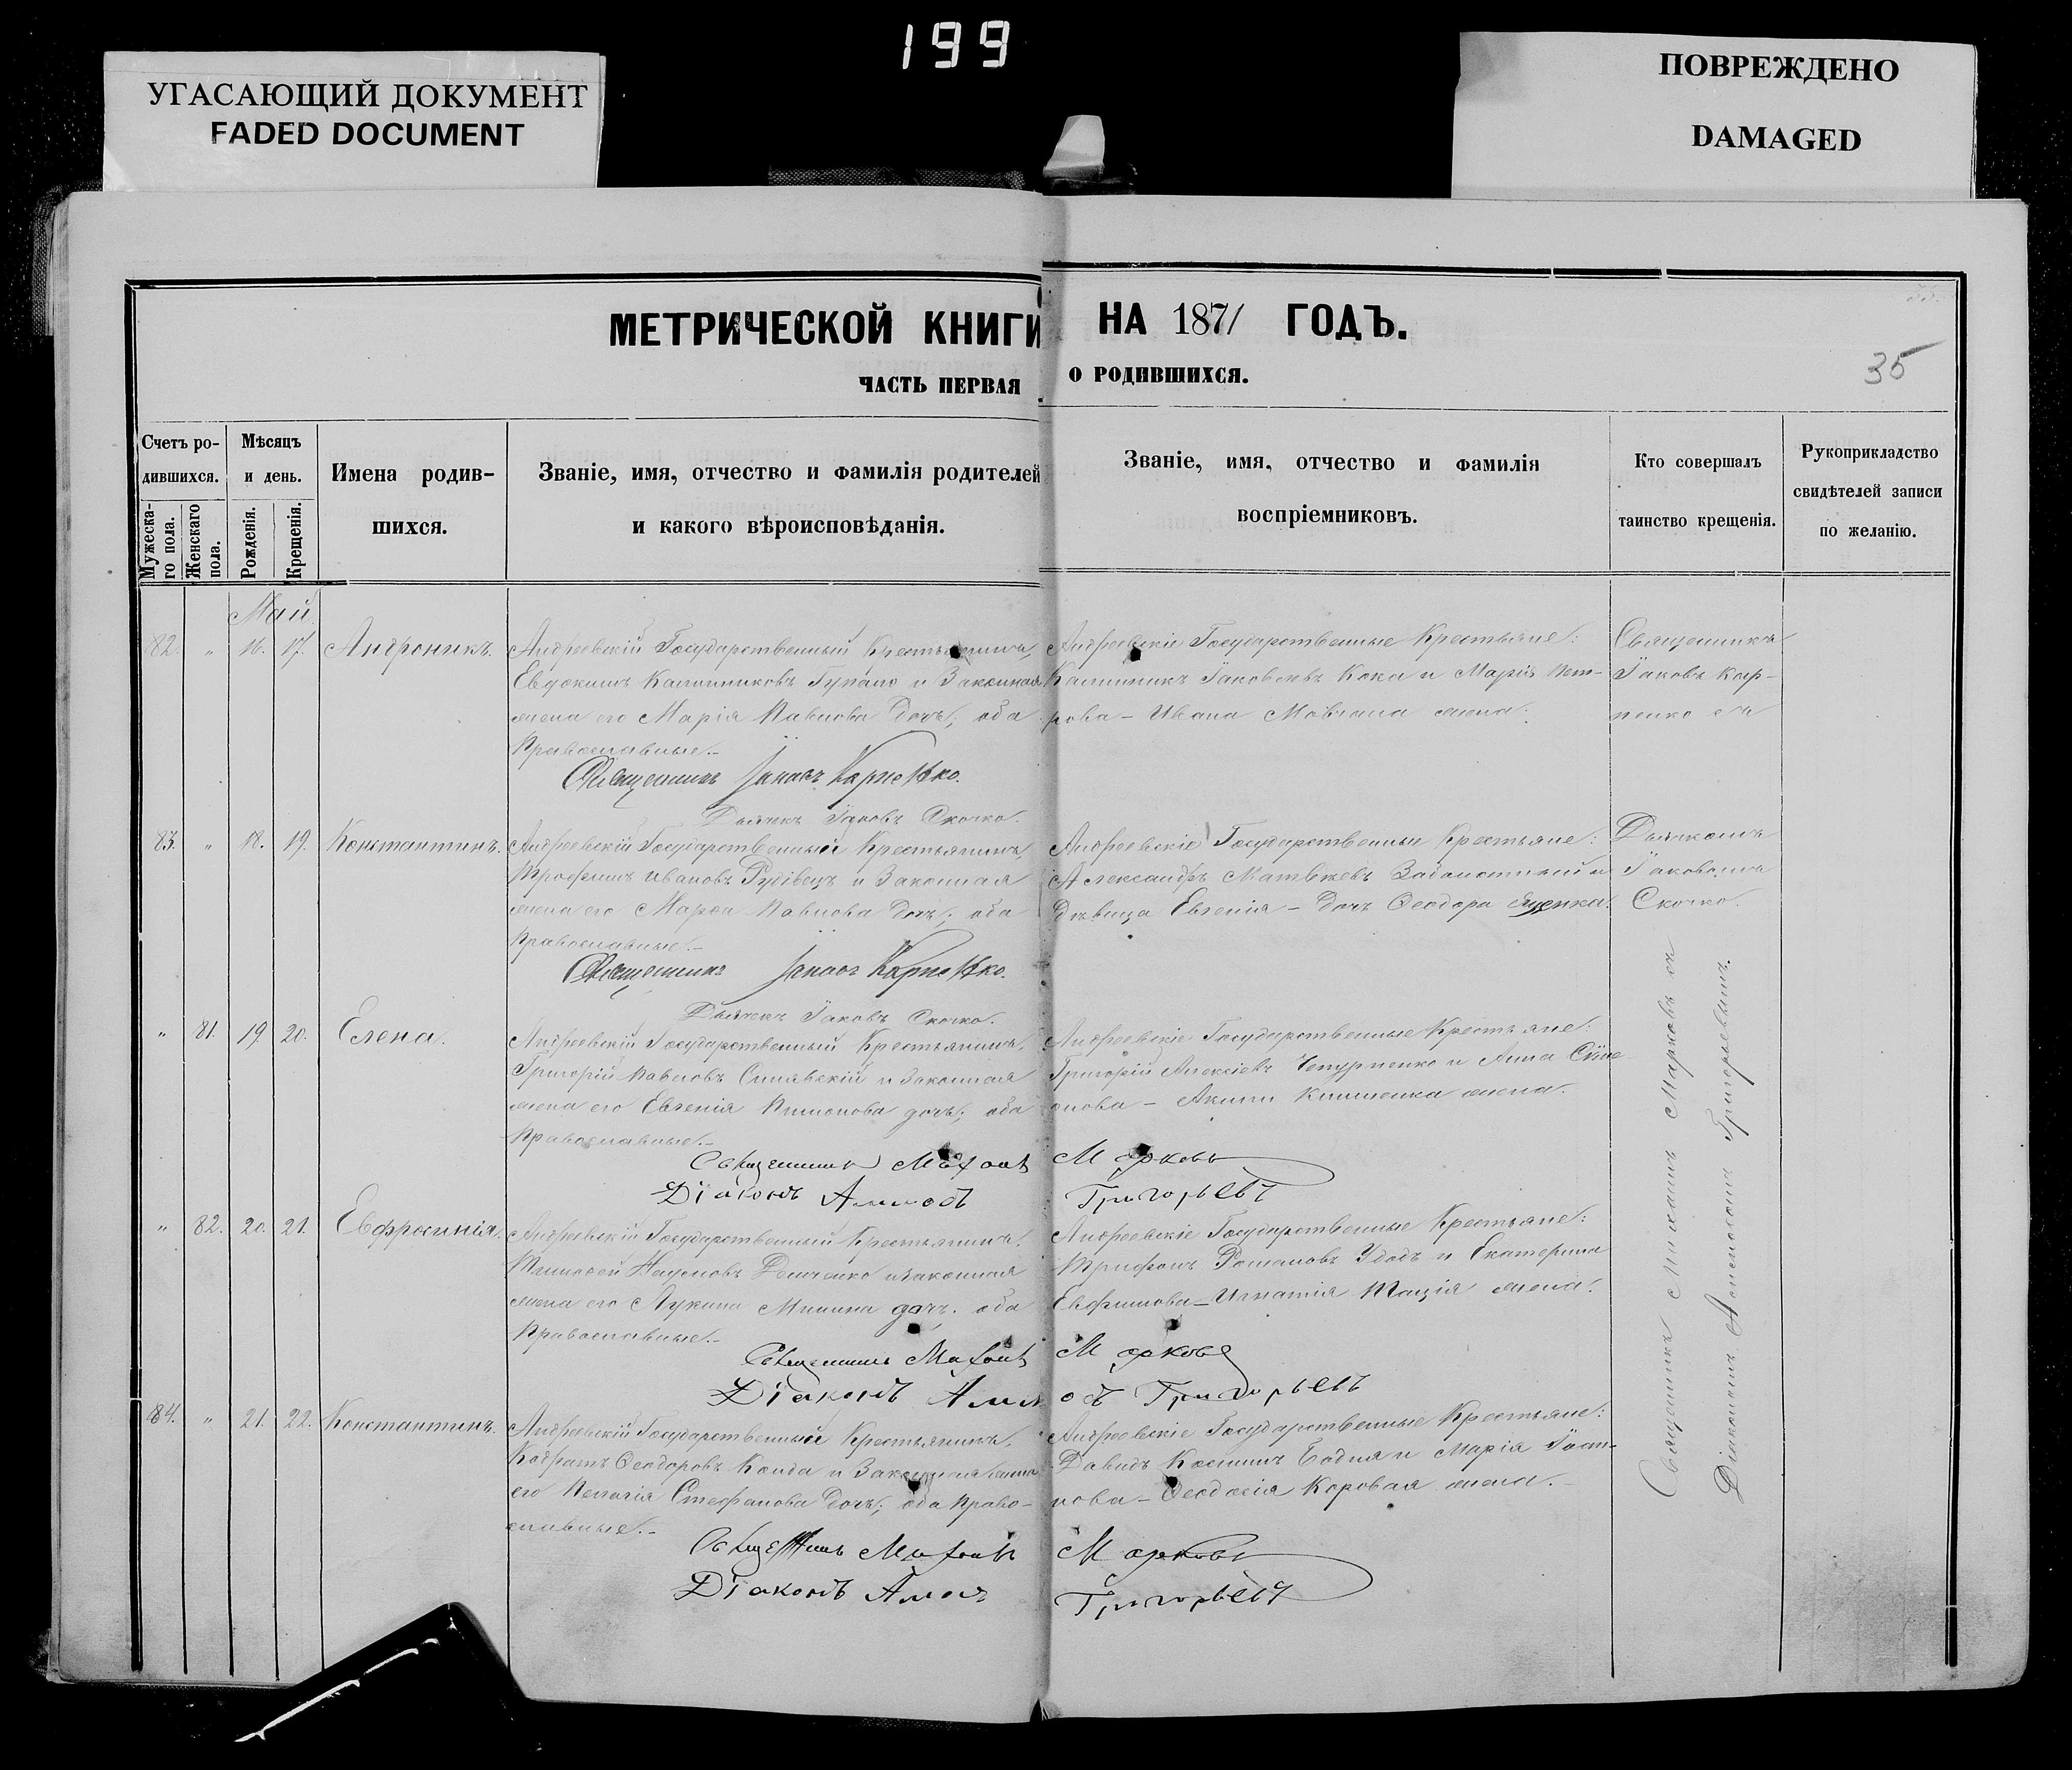 199
УГАСАЮЩИЙ ДОКУМЕНТ
FADED DOCUMENT
ПОВРЕЖДЕНО
DAMAGED
МЕТРИЧЕСКОЙ КНИГИ НА 1871 ГОДЪ.
ЧАСТЬ ПЕРВАЯ О РОДИВШИХСЯ.
35
Счетъ ро-
дившихся.
Мужеска-
го пола.
Женскаго
пола.
Мѣсяцъ
и день.
Рожденія.
Крещенія.
Имена родив-
шихся.
Званіе, имя, отчество и фамилія родителей
и какого вѣроисповѣданія.
Званіе, имя, отчество и фамилія
воспріемниковъ.
Кто совершалъ
таинство крещенія.
Рукоприкладство
свидѣтелей записи
по желанію.
Май
82. " 16. 17. Андроникъ.
Андреевскій Государственный Крестьянинъ,
Евдокимъ Калинниковъ и Законная
жена его Марія Павлова дочь; оба
Православные.-
Священникъ Іаковъ Карпенко.
Дьячекъ Іаковъ Скочко.
Андреевскіе Государственные Крестьяне:
Калинникъ Іаковлевъ Кока и Марія Пет-
рова - Ивана Мовчана жена.
Священникъ
Іаковъ Кар-
пенко
83. " 18. 19. Константинъ.
Андреевскій Государственный Крестьянинъ,
Трофимъ Ивановъ и Законная
жена его Марѳа Павлова дочь; оба
Православные.-
Священникъ Іаковъ Карпенко.
Дьячекъ Іаковъ Скочко.
Андреевскіе Государственные Крестьяне:
Александръ Матвѣевъ и
Дѣвица Евгенія - дочь Ѳеодора
Іаковомъ
Скочко.
" 81. 19. 20. Елена.
Андреевскій Государственный Крестьянинъ,
Григорій Павловъ Синявскій и Законная
жена его Евгенія дочь; оба
Православные.-
Священникъ Михаилъ Марковъ
Діаконъ Григорьевъ
Андреевскіе Государственные Крестьяне:
Григорій Алексіевъ Чепурненко и Анна Симе
онова - жена.
" 82. 20. 21. Евфросинія.
Андреевскій Государственный Крестьянинъ,
Тимоѳей Наумовъ Демченко и законная
жена его Лукина дочь; оба
Православные.-
Священникъ Михаилъ Марковъ
Діаконъ Григорьевъ
Андреевскіе Государственные Крестьяне:
Трифонъ Романовъ Удодъ и Екатерина
Евфимова - Игнатія жена.
84. " 21. 22. Константинъ.
Андреевскій Государственный Крестьянинъ,
Кодратъ Ѳеодоровъ Конда и Законная жена
его Пелагія Стефанова дочь; оба Право-
славные.-
Священникъ Михаилъ Марковъ
Діаконъ Григорьевъ
Андреевскіе Государственные Крестьяне:
Давидъ Косминъ Бодня и Марія Іоан-
нова - Ѳеодосія Коровая жена.-
Священникъ Михаилъ Марковъ съ
Діакономъ Григорьевымъ.